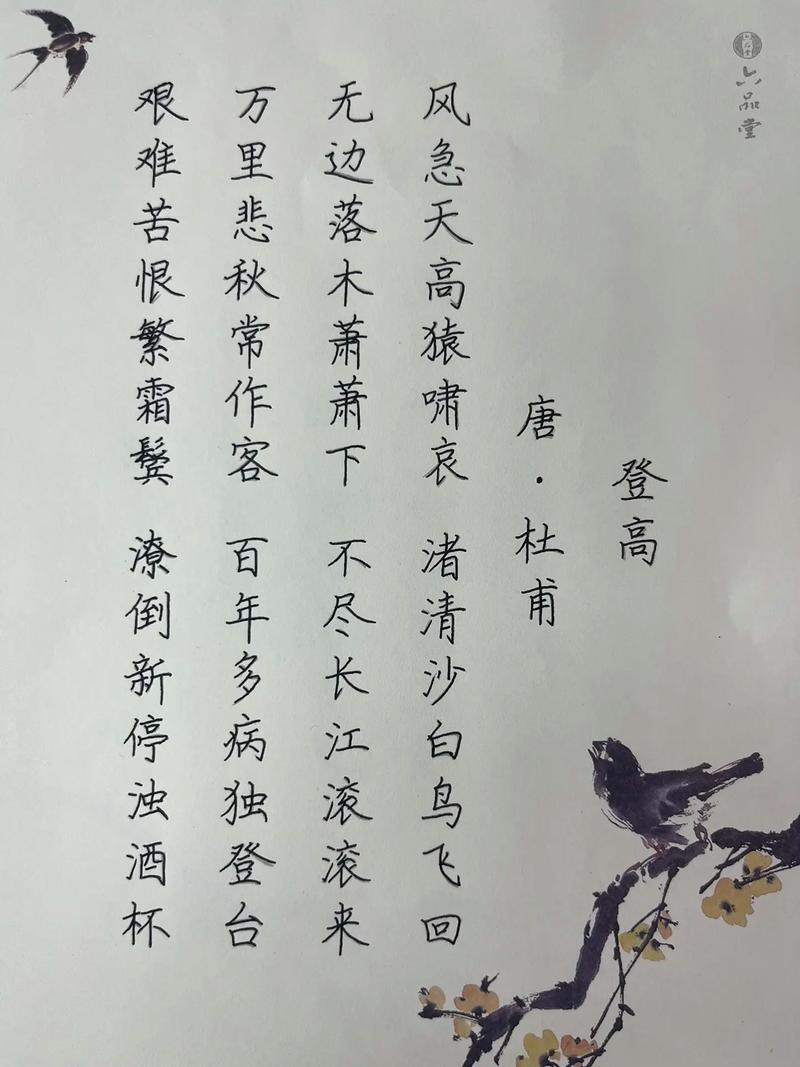 登高
唐·杜甫
风急天高猿啸哀 渚清沙白鸟飞回
无边落木萧萧下 不尽长江滚滚来
万里悲秋常作客 百年多病独登台
艰难苦恨繁霜鬓 潦倒新停浊酒杯
六品堂